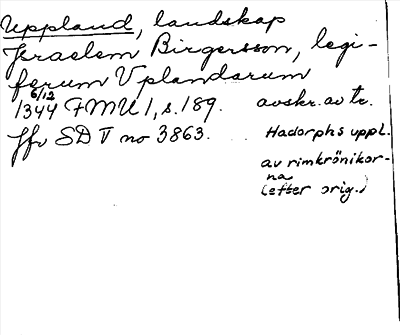 Uppland, landskap
Israelem Birgersson, legi-
ferum Uplandarum
6/12
1344 FMU I, s. 189. avskr. av tr.
Jfr SD V no 3863. Hadorphs uppl.
av rimkrönikor-
na
(efter orig.)